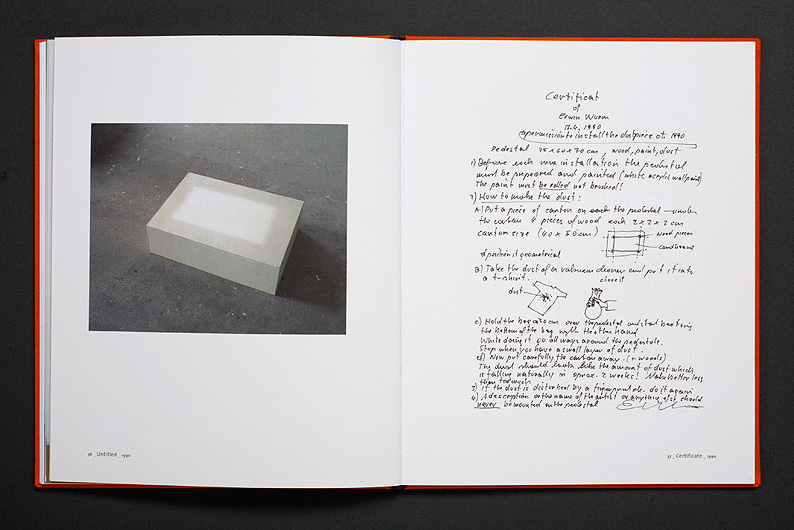 36 _ Untitled _ 1990
Certificat
of
Erwin Wurm
17.4, 1990
permission to install the dustpiece of 1990
Pedestal 25 x 60 x 70 cm, wood, paint, dust
1) Before each new installation the pedestal
must be prepared and painted (white acrylic wallpaint)
The paint must be rolled not brushed!
2) How to make the dust:
A) Put a piece of carton on the pedestal – under
the carton 4 pieces of wood each 2 x 2 x 2 cm
carton size (40 x 50 cm)
wood pieces
cardboard
position it geometrical
B) Take the dust of a vakuum cleaner and put it into
a t-shirt.
close it
dust
c) Hold the bag 20 cm over the pedestal and start
the bottom of the bag with the other hand
While doing it go all ways around the pedestale.
Stop when you have a small layer of dust.
d) Now put carefully the carton away. (+ woods)
The dust should look like the amount of dust which
is falling naturally in aprox. 2 weeks! Make better less
than too much
3) If the dust is disturbed by a fingerprint do it again
4) A description or the name of the artist or anything else should
never be mounted on the pedestal
37 _ Certificate _ 1990